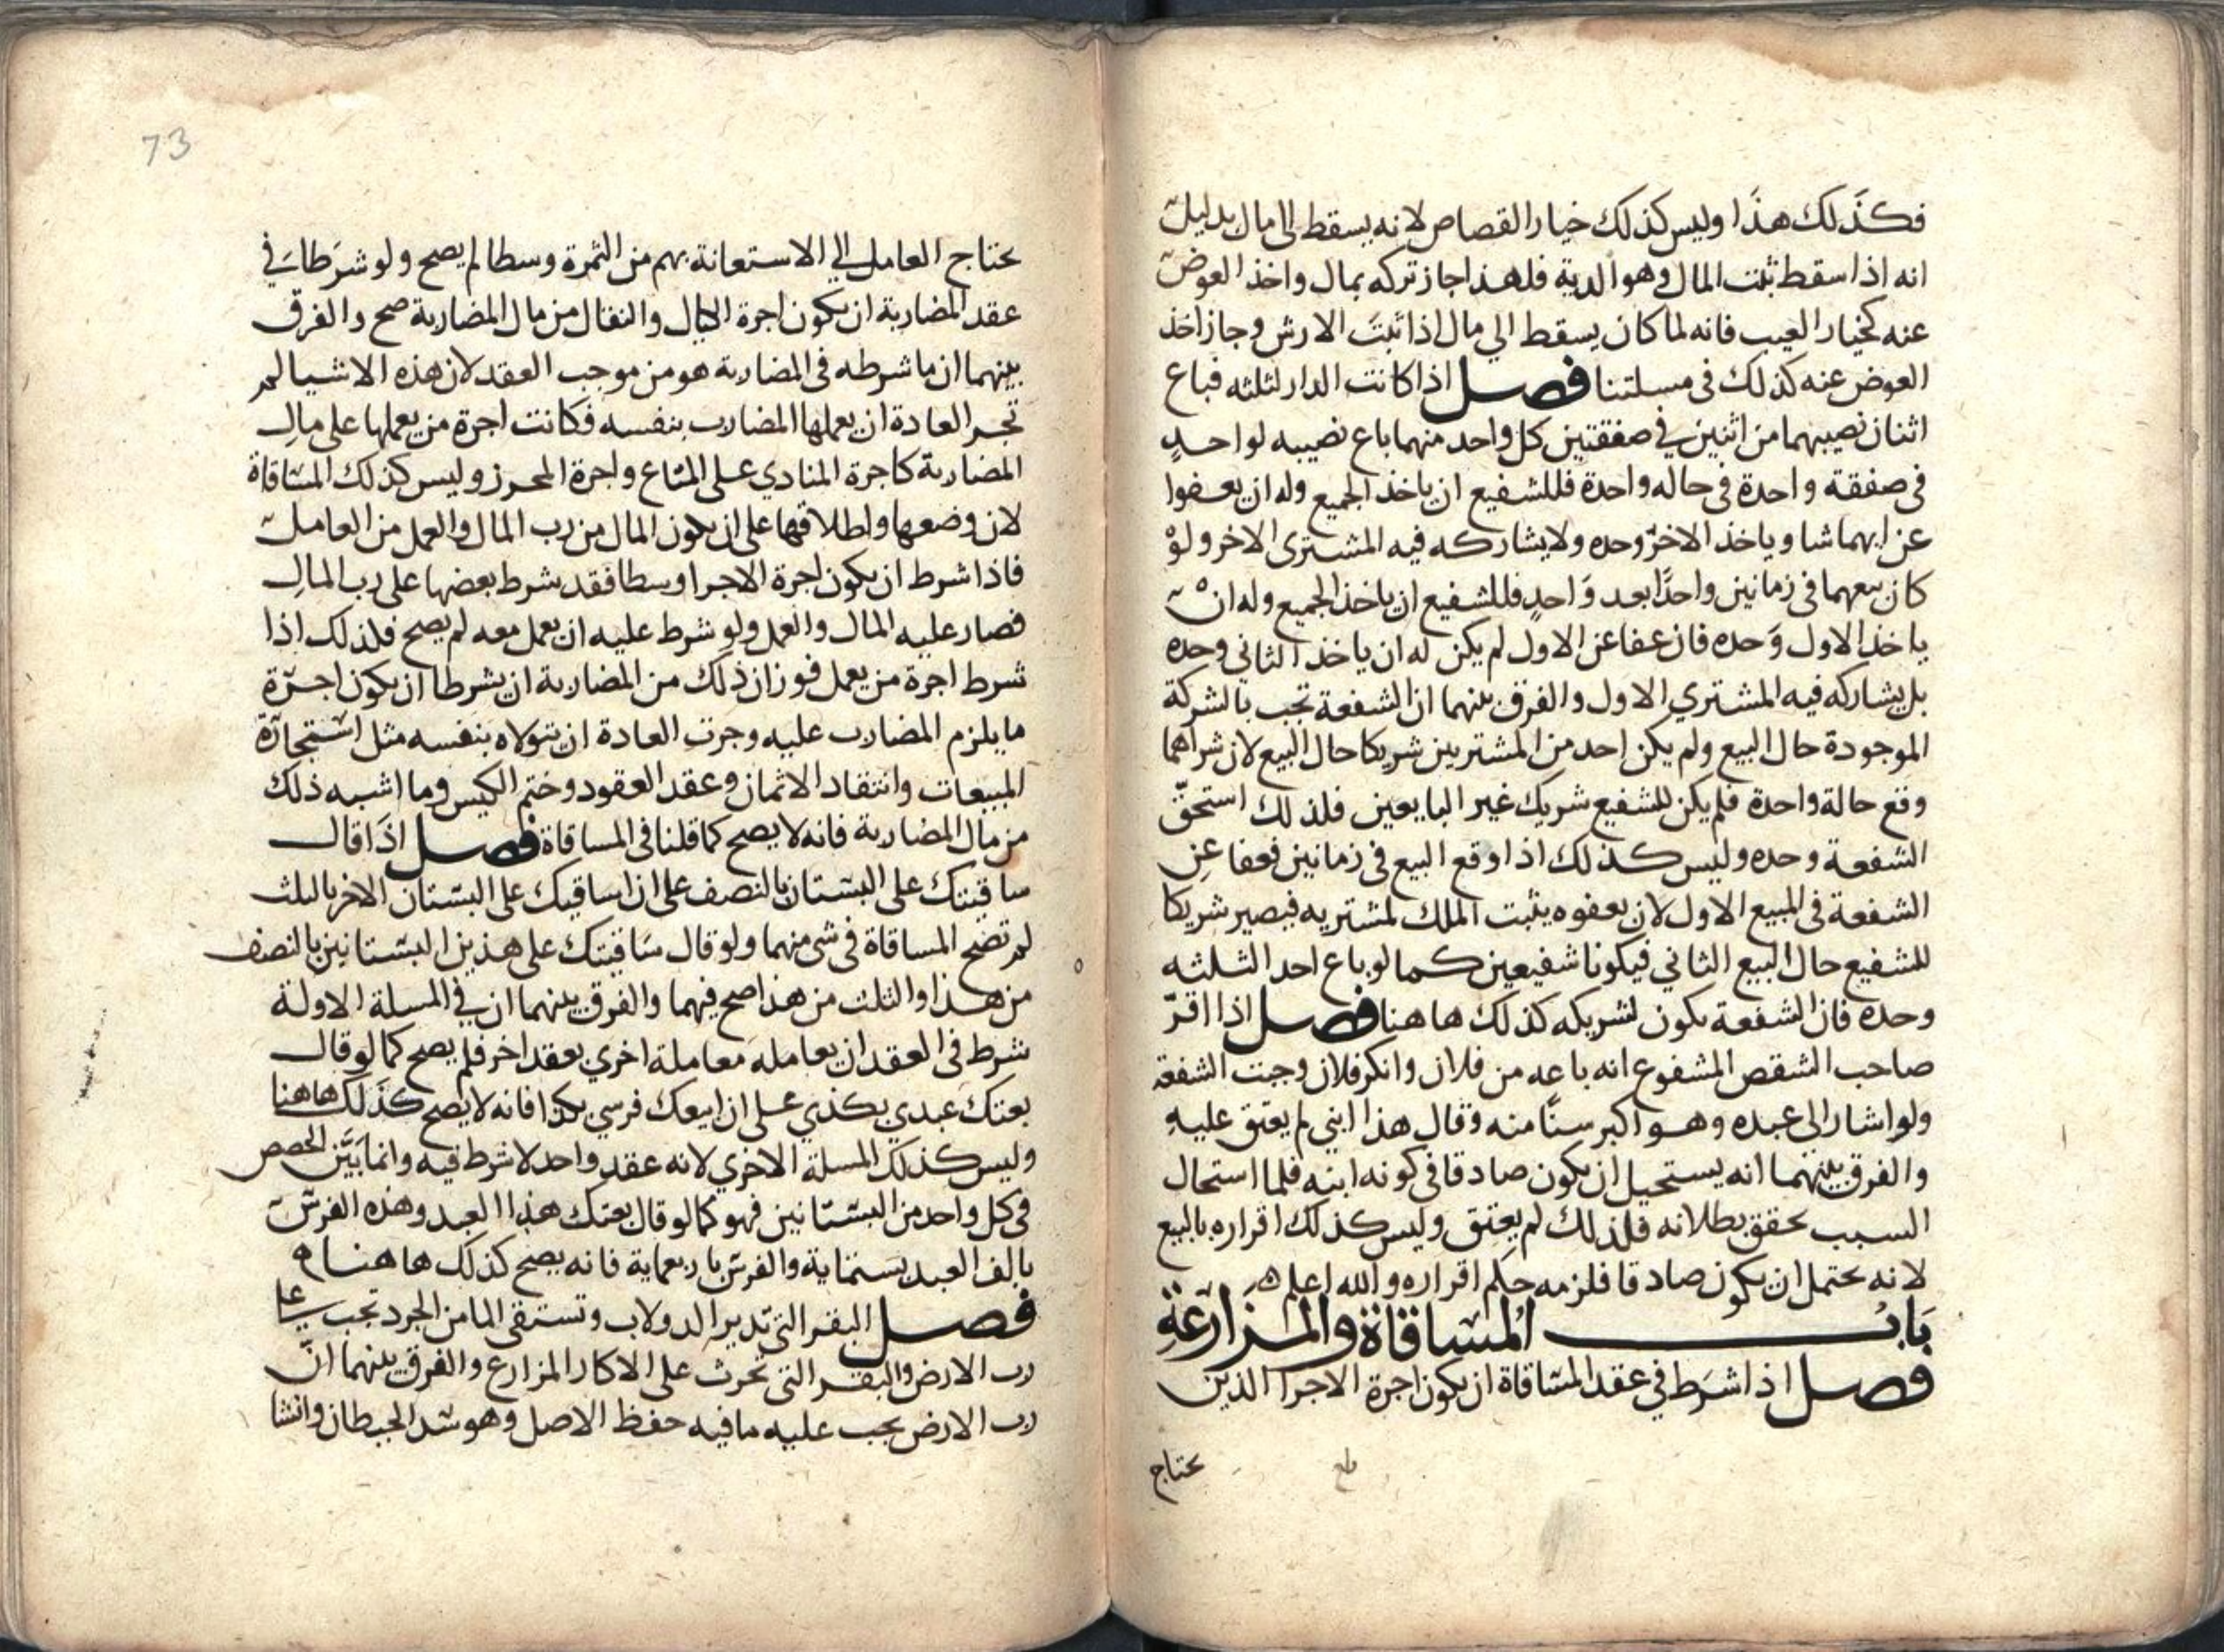 فكذلك هذا وليس كذلك خيار القصاص لانه يسقط الى مال بدليل
انه اذا سقط ثبت المال وهو الدية فلهذا جاز تركه بمال واخذ العوض
عنه كخيار العيب فانه لما كان يسقط الي مال اذا ثبت الارش وجاز اخذ
العوض عنه كذلك فى مسلتنا فصل اذا كانت الدار لثلثه فباع
اثنان نصيبهما من اثنين في صفقتين كل واحد منهما باع نصيبه لواحد
فى صفقة واحدة فى حاله واحدة فللشفيع ان ياخذ الجميع وله ان يعفوا
عن ايهما شا وياخذ الاخر وحده ولا يشاركه فيه المشترى الاخر ولو
كان بيعهما فى زمانين واحدًا بعد واحد فللشفيع ان ياخذ الجميع وله ان
ياخذ الاول وحده فان عفا عن الاول لم يكن له ان ياخذ الثانى وحده
بل يشاركه فيه المشتري الاول والفرق بينهما ان الشفعة تجب بالشركة
الموجودة حال البيع ولم يكن احد من المشتريين شريكا حال البيع لان شراهما
وقع حالة واحدة فلم يكن للشفيع شريك غير البايعين فلذلك استحق
الشفعة وحده وليس كذلك اذا وقع البيع فى زمانين فعفا عن
الشفعة فى المبيع الاول لان بعفوه يثبت الملك لمشتريه فيصير شريكا
للشفيع حال البيع الثاني فيكونا شفيعين كما لو باع احد الثلثه
وحده فان الشفعة تكون لشريكه كذلك هاهنا فصل اذا اقرّ
صاحب الشقص المشفوع انه باعه من فلان وانكر فلان وجبت الشفعة
ولو اشار الى عبده وهو اكبر سنًا منه وقال هذا ابني لم يعتق عليه
والفرق بينهما انه يستحيل ان يكون صادقا فى كونه ابنه فلما استحال
السبب تحقق بطلانه فلذلك لم يعتق وليس كذلك اقراره بالبيع
لانه يحتمل ان يكون صادقا فلزمه حكم اقراره والله اعلم
باب المساقاة والمزارعة
فصل اذا شرط في عقد المساقاة ان يكون اجرة الاجرا الذين
يحتاج
73
يحتاج العامل الي الاستعانة بهم من الثمرة وسطا لم يصح ولو شرطا في
عقد المضاربة ان يكون اجرة الكيال والنقال من مال المضاربة صح والفرق
بينهما ان ما شرطه فى المضاربة هو من موجب العقد لان هذه الاشيا لم
تجر العادة ان يعملها المضارب بنفسه فكانت اجرة من يعملها على مال
المضاربة كاجرة المنادي على المتاع واجرة المحرز وليس كذلك المساقاة
لان وضعها واطلاقها على ان يكون المال من رب المال والعمل من العامل
فاذا شرط ان يكون اجرة الاجرا وسطا فقد شرط بعضها على رب المال
فصار عليه المال والعمل ولو شرط عليه ان يعمل معه لم يصح فلذلك اذا
شرط اجرة من يعمل فوزان ذلك من المضاربة ان يشرطا ان يكون اجرة
ما يلزم المضارب عليه وجرت العادة ان يتولاه بنفسه مثل استجارة
المبيعات وانتقاد الاثمان وعقد العقود وختم الكيس وما اشبه ذلك
من مال المضاربة فانه لا يصح كما قلنا فى المساقاة فصل اذا قال
ساقيتك على البستان بالنصف على ان اساقيك على البستان الاخر بالثلث
لم تصح المساقاة فى شى منهما ولو قال ساقيتك على هذين البستانين بالنصف
من هذا والثلث من هذا صح فيهما والفرق بينهما ان في المسلة الاولة
شرط فى العقد ان يعامله معاملة اخري بعقد اخر فلم يصح كما لو قال
بعتك عبدي بكذي على ان ابيعك فرسي بكذا فانه لا يصح كذلك هاهنا
وليس كذلك المسلة الاخري لانه عقد واحد لا شرط فيه وانما بيّن الحصص
فى كل واحد من البستانين فهو كما لو قال بعتك هذا العبد وهذه الفرس
بالف العبد بستماية والفرس باربعماية فانه يصح كذلك هاهنا ه
فصل البقر التى تدير الدولاب وتستقى الما من الجرد تجب على
رب الارض والبقر التى تحرث على الاكار المزارع والفرق بينهما ان
رب الارض يجب عليه ما فيه حفظ الاصل وهو شد الحيطان وانشا